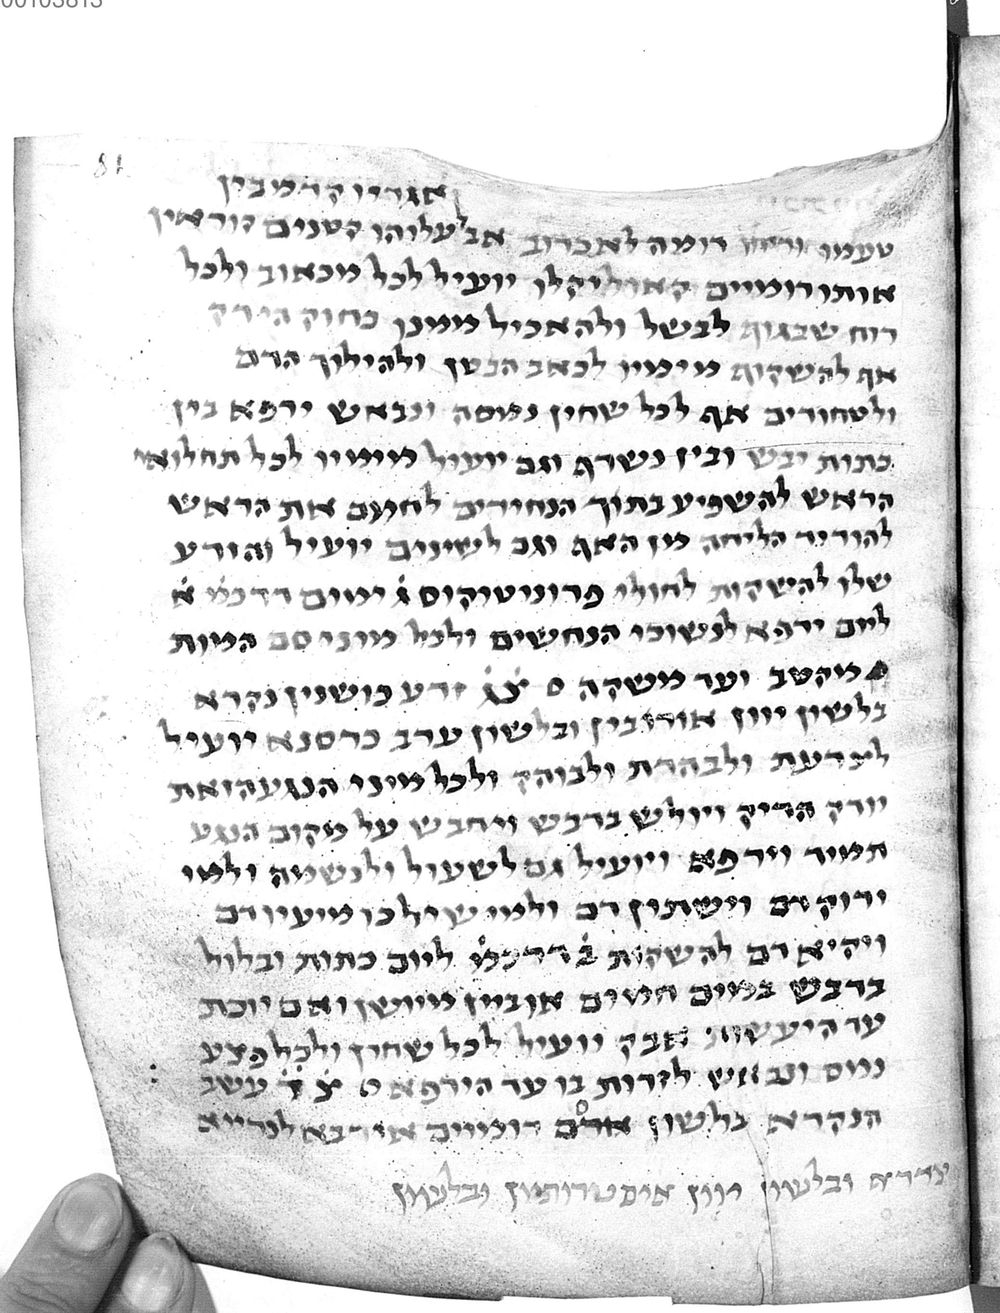 00103813
81
אגריו קרמבין
טעמו וריחו דומה לאכרוב אב׳ עלוהו קטנים קוראין
אותו רומיים קאוליקלו יועיל לכל מכאוב ולכל
רוח שבגוף לבשל ולהאכיל ממנו כחוק הירק
אף להשקות מימיו לכאב הבטן ולהילוך הדם
ולטחורים אף לכל שחין נמסה ונבאש ירפא בין
כתות יבש ובין נשרף וגם יועיל מימיו לכל תחלואי
הראש להשפיע בתוך הנחירים לחמם את הראש
להוריד הליחה מן האף וגם לשינים יועיל והזרע
שלו להשקות לחולי פרוניטיקוס ג׳ ימים דרכמ׳ א׳
ליום ירפא לנשוכי הנחשים ולכל מיני סם המות
מיקטב ועד משקה צג זרע כושנין נקרא
בלשון יוון אורובין ובלשון ערב כרסנא יועיל
לצרעת ולבהרת ולבוהק ולכל מיני הנגע הזאת
יורק הדיק ויולש בדבש ויחבש על מקום הנגע
תמיד וירפא ויועיל גם לשעול ולנשמה ולמי
ירוק דם וישתין דם ולמי שילכו מיעיו דם
ויקיא דם להשקות ב׳ דרכמ׳ ליום כתות ובלול
בדבש במים חמים או ביין מיושן ואם יוכת
עד היעשות אבק יועיל לכל שחין ולכל פצע
נמס ונבאש לזרות בו עד הירפא צד עשב
הנקרא בלשון ארם רומיים אירבא לנרייא
צדדא ובלשון יוון אוסטרותיון ובלשון